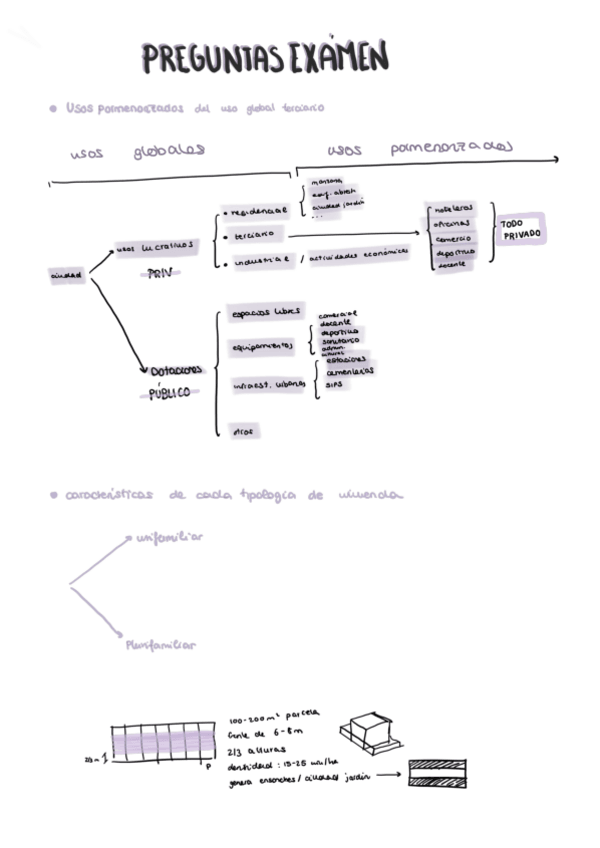 PREGUNTAS EXÁMEN
• Usos pormenorizados del uso global terciario
usos globales
usos pormenorizados
manzana
ciudad jardín
...
• residencial
• terciario
• industrial / actividades económicas
hoteleras
oficinas
comercio
deportivo
docente
TODO
PRIVADO
usos lucrativos
PRIV
ciudad
Dotaciones
PÚBLICO
espacios libres
equipamientos
comercial
docente
deportivo
sanitario
admin.
infraest. urbanas
estaciones
cementerios
SIPS
otros
• características de cada tipología de vivienda
unifamiliar
Plurifamiliar
100-200 m² parcela
frente de 6-8m
2/3 alturas
densidad: 15-25 viv/ha
genera ensanches / ciudad jardín
P